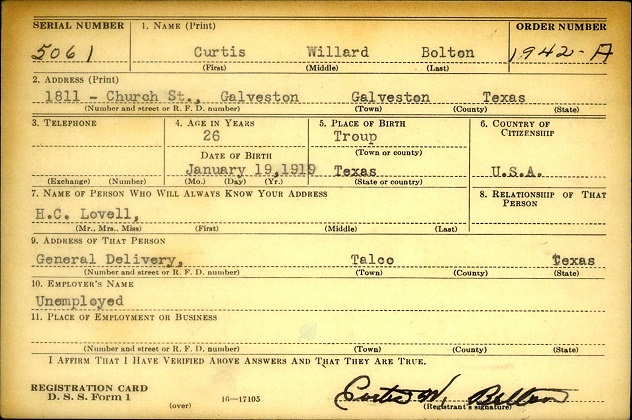 SERIAL NUMBER 1. NAME (Print) ORDER NUMBER
5061 Curtis Willard Bolton 1942-A
(First) (Middle) (Last)
2. ADDRESS (Print)
1811 - Church St., Galveston Galveston Texas
(Number and street or R. F. D. number) (Town) (County) (State)
3. TELEPHONE 4. AGE IN YEARS 5. PLACE OF BIRTH 6. COUNTRY OF CITIZENSHIP
26 Troup
DATE OF BIRTH (Town or county)
January 19,1919 Texas U.S.A.
(Exchange) (Number) (Mo.) (Day) (Yr.) (State or country)
7. NAME OF PERSON WHO WILL ALWAYS KNOW YOUR ADDRESS 8. RELATIONSHIP OF THAT PERSON
H.C. Lovell,
(Mr., Mrs., Miss) (First) (Middle) (Last)
9. ADDRESS OF THAT PERSON
General Delivery, Talco Texas
(Number and street or R. F. D. number) (Town) (County) (State)
10. EMPLOYER'S NAME
Unemployed
11. PLACE OF EMPLOYMENT OR BUSINESS
(Number and street or R. F. D. number) (Town) (County) (State)
I AFFIRM THAT I HAVE VERIFIED ABOVE ANSWERS AND THAT THEY ARE TRUE.
REGISTRATION CARD
D. S. S. Form 1 (over) 16—17105 Curtis W. Bolton
(Registrant's signature)